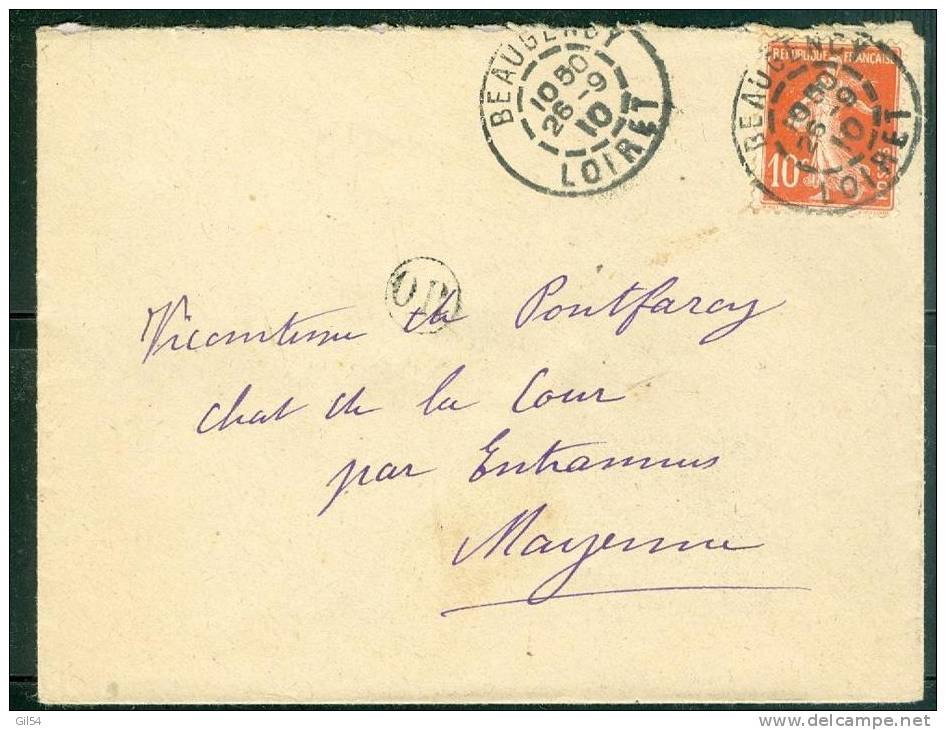 BEAUGENCY
10 50
26 -9
10
LOIRET
REPUBLIQUE FRANÇAISE
BEAUGENCY
10 50
26 -9
10
LOIRET
10c
POSTES
OR
Vicomtesse de Pontfarcy
chat de la Cour
par Entrammes
Mayenne
Gil54
www.delcampe.net